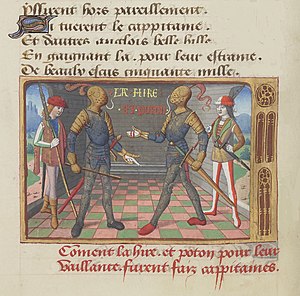 yssirent hors pareillement.
Si tuerent le cappitaine
Et dautres anglois belle bille
En gaignant la pour leur estraine
De beaulx escus cinquante mille.
LA HIRE
Coment la hire et poton pour leur
vaillance furent faiz cappitaines.